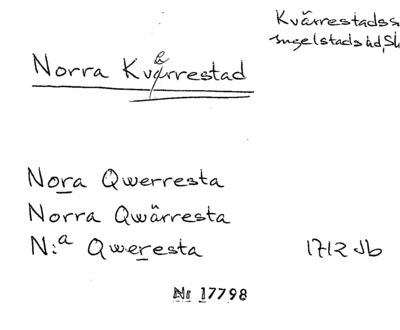 Kvärrestads
Ingelstads hd, Sk
Norra Kvärrestad
Nora Qwerresta
Norra Qwärresta
N:a Qweresta 1712 Jb
Nr 17798